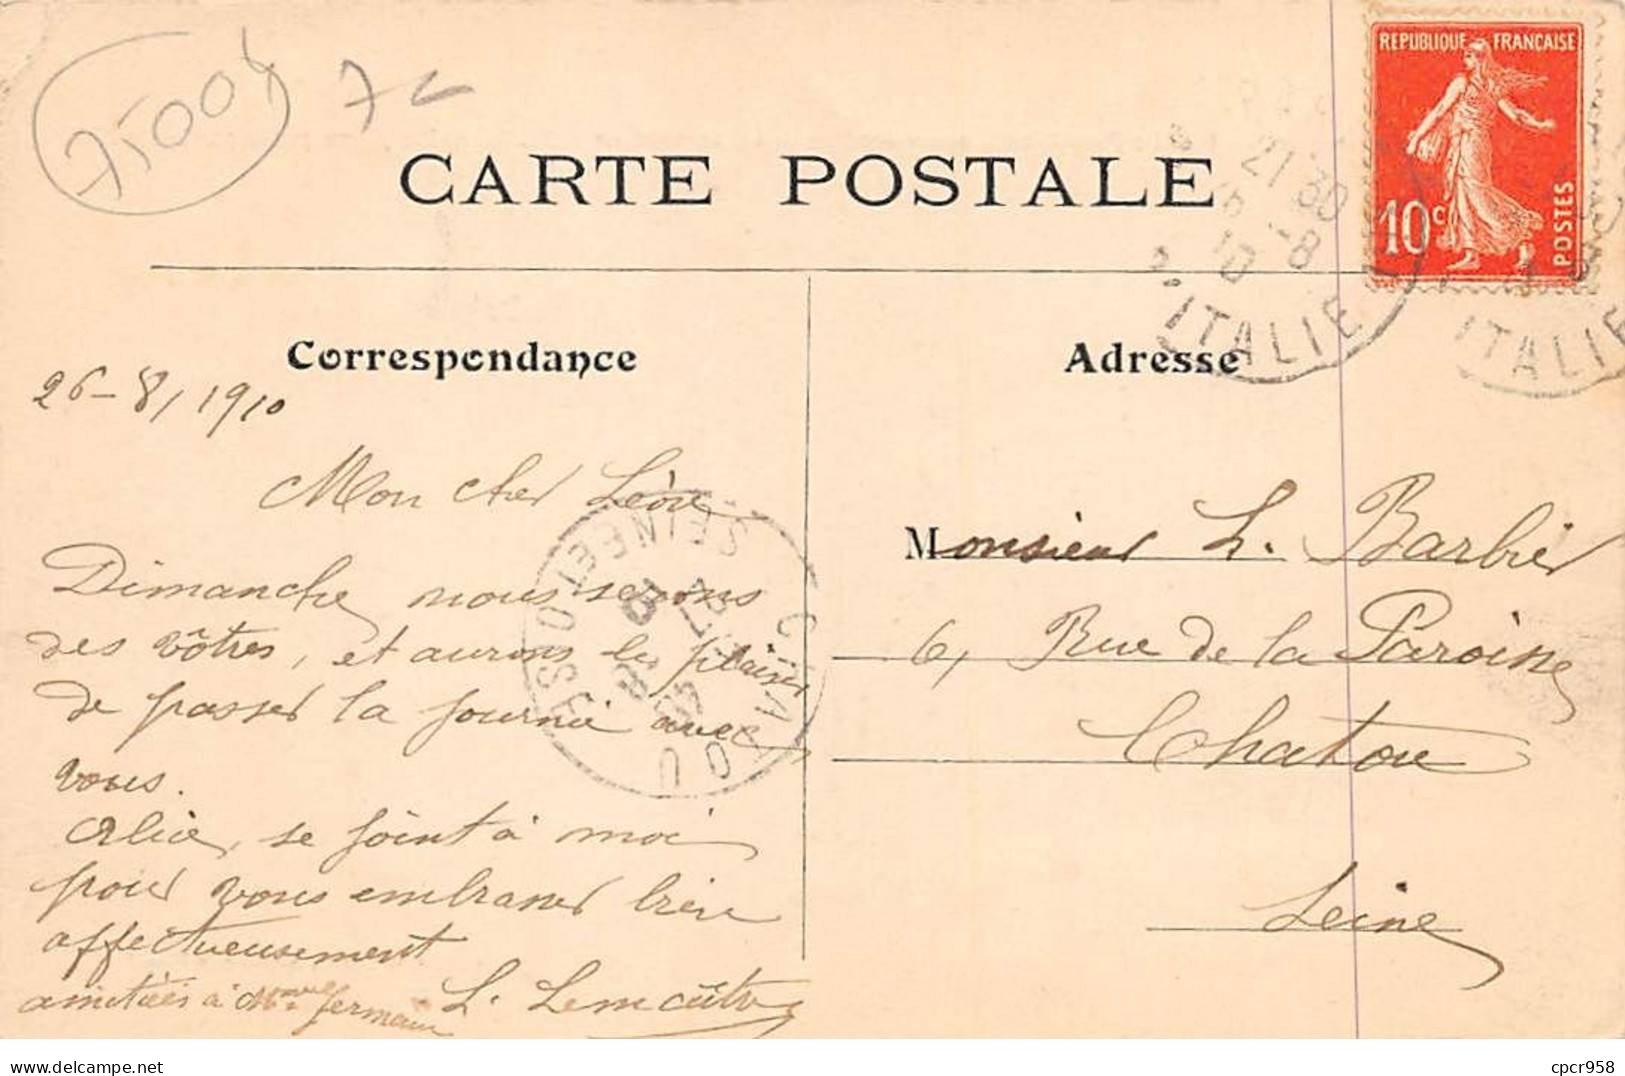 75004
7c
CARTE POSTALE
REPUBLIQUE FRANÇAISE
10c
POSTES
21 30
26 - 8
10
ITALIE
ITALIE
Correspondance
Adresse
26-8/1910
Mon cher Léon
Dimanche nous serons
des vôtres, et aurons le plaisir
de passer la journé avec
vous.
Alice, se joint à moi
pour vous embrasser bien
affectueusement
amitiés à Mme Germain
L. Lemaître
CHATOU
SEINE ET OISE
27
8
10
Monsieur L. Barbier
6, Rue de la Paroisse
Chatou
Seine
delcampe.net
cpcr958